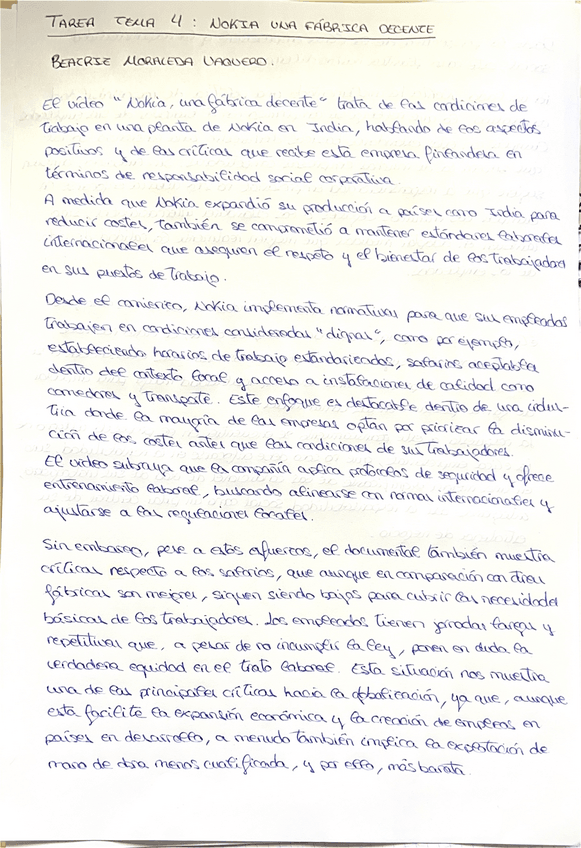 TAREA TEMA 4: NOKIA UNA FÁBRICA DECENTE
BEATRIZ MORALEDA VAQUERO.
El vídeo "Nokia, una fábrica decente" trata de las condiciones de
trabajo en una planta de Nokia en India, hablando de los aspectos
positivos y de las críticas que recibe esta empresa finlandesa en
términos de responsabilidad social corporativa.
A medida que Nokia expandió su producción a países como India para
reducir costes, también se comprometió a mantener estándares laborales
internacionales que aseguren el respeto y el bienestar de los trabajadores
en sus puestos de trabajo.
Desde el comienzo, Nokia implementa normativas para que sus empleados
trabajen en condiciones consideradas "dignas", como por ejemplo,
estableciendo horarios de trabajo estandarizados, salarios aceptables
dentro del contexto local y acceso a instalaciones de calidad como
comedores y transporte. Este enfoque es destacable dentro de una indus-
tria donde la mayoría de las empresas optan por priorizar la disminu-
ción de los costes antes que las condiciones de sus trabajadores.
El vídeo subraya que la compañía aplica protocolos de seguridad y ofrece
entrenamiento laboral, buscando alinearse con normas internacionales y
ajustarse a las regulaciones locales.
Sin embargo, pese a estos esfuerzos, el documental también muestra
críticas respecto a los salarios, que aunque en comparación con otras
fábricas son mejores, siguen siendo bajos para cubrir las necesidades
básicas de los trabajadores. Los empleados tienen jornadas largas y
repetitivas que, a pesar de no incumplir la ley, ponen en duda la
verdadera equidad en el trato laboral. Esta situación nos muestra
una de las principales críticas hacia la globalización, ya que, aunque
esta facilite la expansión económica y la creación de empleos en
países en desarrollo, a menudo también implica la explotación de
mano de obra menos cualificada, y por ello, más barata.